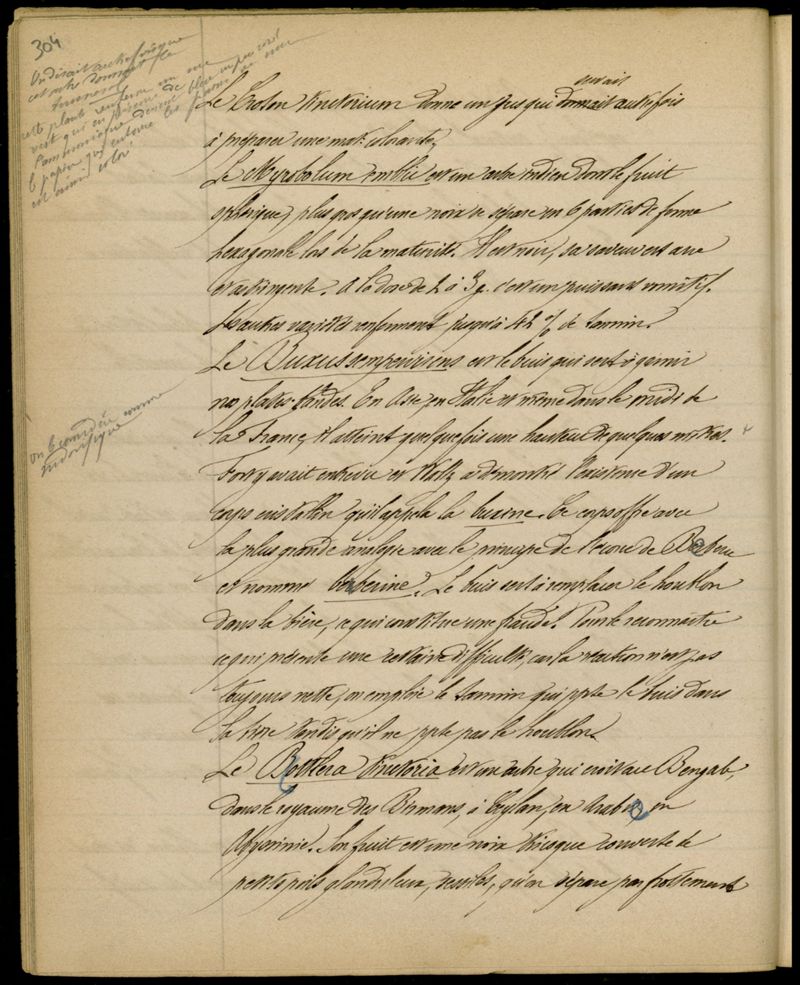 304
On disait autrefois que
cette plante renferme un suc
vert qui en présence de
l'ammoniaque devient bleu
le papier qui entoure les fromages
est ainsi coloré
servait
Le Croton tinctorium donne un jus qui donnait autrefois
à préparer une mat. colorante,
Le Myrobolum emblic est un arbre indien dont le fruit
sphérique, plus gros qu'une noix se sépare en 6 parties de forme
hexagonale lors de la maturité. Il est noir, sa saveur est âcre
et astringente. A la dose de 2 à 3 g. c'est un puissant vomitif.
Les autres variétés renferment jusqu'à 42 % de tannin.
Le Buxus sempervirens est le buis qui sert à garnir
nos plates-bandes. En Asie, en Italie et même dans le midi de
la France, il atteint quelquefois une hauteur de quelques mètres.
On le considère comme
sudorifique
Foré y avait entrevu et a démontré l'existence d'un
corps cristallin qu'il appela la buxine. Ce corps offre avec
la plus grande analogie avec le principe de l'écorce de Bebeeru
et nommé beberine. Le buis sert à remplacer le houblon
dans la bière, ce qui constitue une fraude. Pour le reconnaître
ce qui présente une certaine difficulté, car la réaction n'est pas
toujours nette, on emploie le tannin qui ppte le buis dans
la bière tandis qu'il ne ppte pas le houblon.
Le Rottlera tinctoria est un arbre qui croît au Bengale,
dans le royaume des Birmans, à Ceylan, en Arabie, en
Abyssinie. Son fruit est une noix tricoque couverte de
petits poils glanduleux, sessiles, qu'on sépare par frottement